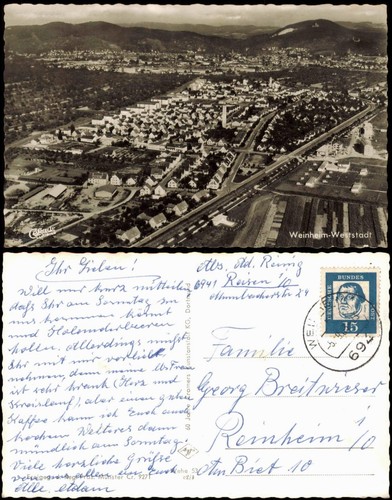 Weinheim-Weststadt
Ihr Lieben!
Will nur kurz mitteilen
daß Ihr am Sonntag zu
uns kommen könnt
Holunderbeeren
holen. Allerdings müßt
Ihr mit mir vorlieb
nehmen, denn meine Frau
ist sehr krank (Herz und
Kreislauf), aber einen guten
Kaffee kann ich Euch auch
kochen. Weiteres dann
mündlich am Sonntag.
Viele herzliche Grüße
Euch
Alle, Adam
Abs. Ad.
6941
DEUTSCHE BUNDESPOST
15
694
Familie
Georg Breitwieser
Reinheim i/O
Am Biet 10